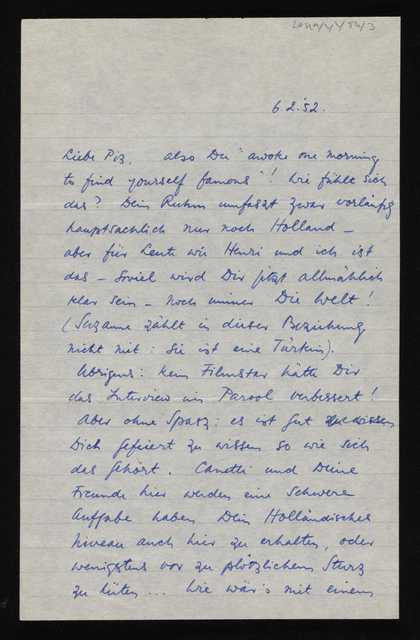 6.2.'52.
Liebe Piz, also Du "awoke one morning
to find yourself famous"! Wie fühlt sich
das? Dein Ruhm umfaszt zwar vorläufig
hauptsächlich nur noch Holland –
aber für Leute wie Henri und ich ist
das – soviel wird Dir jetzt allmählich
klar sein – noch immer Die Welt!
(Suzanne zählt in dieser Beziehung
nicht mit: sie ist eine Türkin).
Übrigens: kein Filmstar hätte Dir
das Interview im Parool verbessert!
Aber ohne Spasz: es ist gut
Dich gefeiert zu wissen so wie sich
das gehört. Canetti und Deine
Freunde hier werden eine schwere
Aufgabe haben Dein Holländisches
Niveau auch hier zu erhalten, oder
wenigstens vor zu plötzlichem Sturz
zu hüten ... Wie wär's mit einem